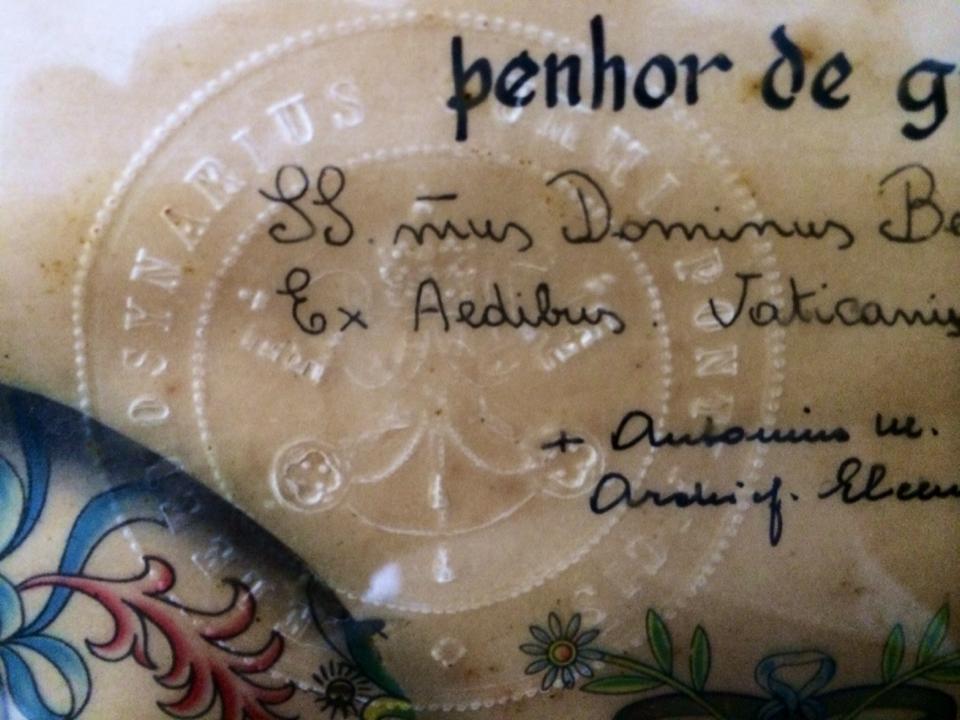 penhor de g
SS. m̄us Dominus Be
Ex Aedibus Vaticanis
+ Antonius M.
Archiep.
OSYNARIUS
PONT